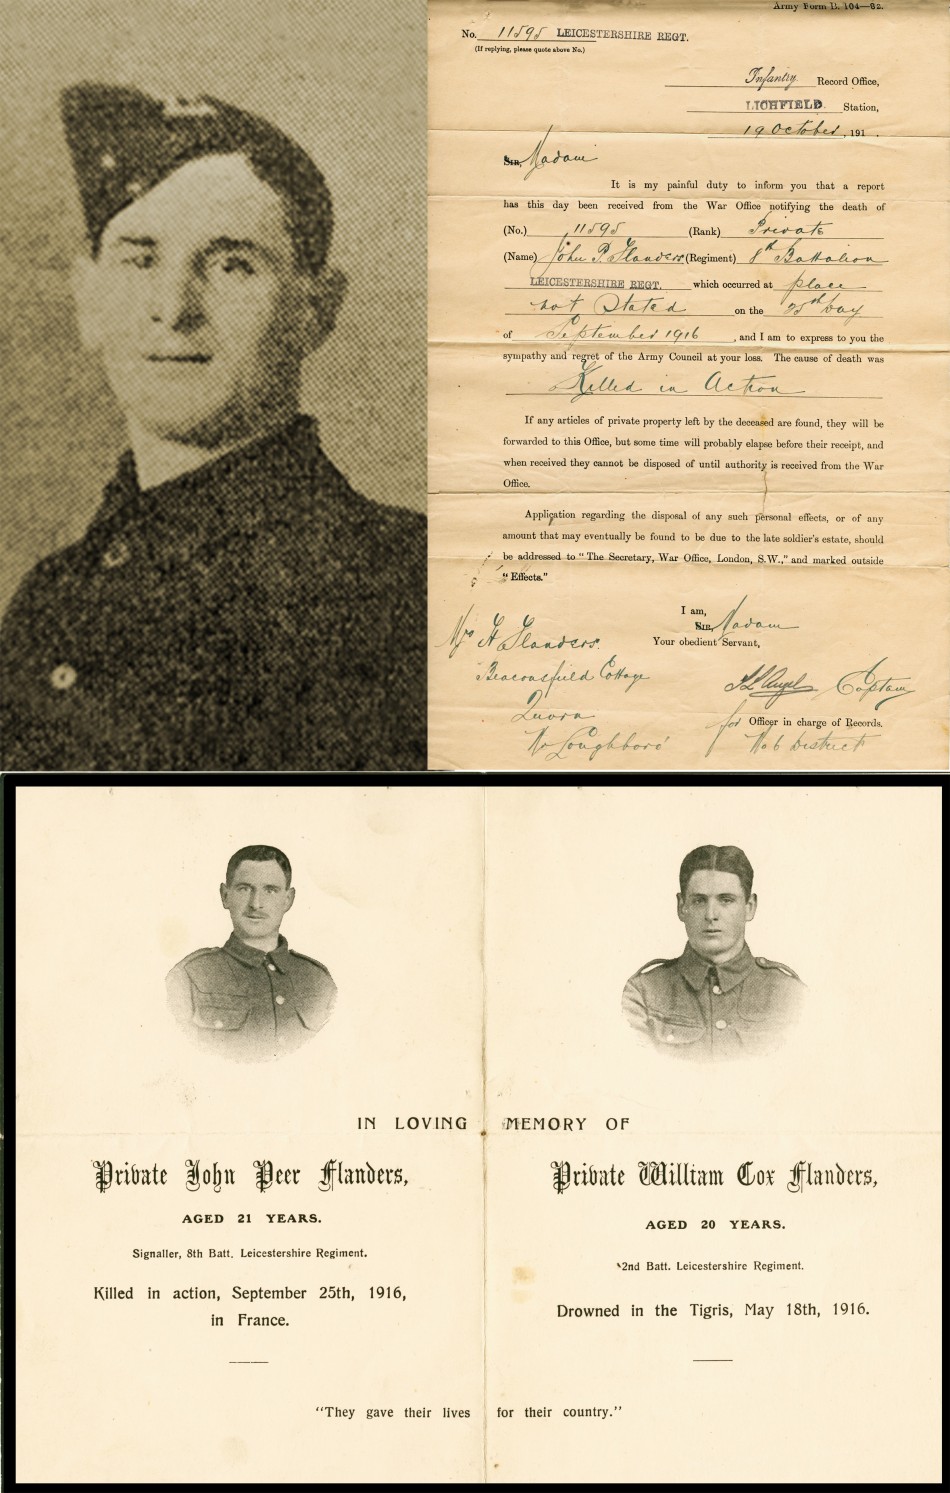 Army Form B. 104—82.
No. 11595 LEICESTERSHIRE REGT.
(If replying, please quote above No.)
Infantry Record Office,
LICHFIELD. Station,
19 October, 191 .
Sir, Madam
It is my painful duty to inform you that a report
has this day been received from the War Office notifying the death of
(No.) 11595 (Rank) Private
(Name) John P. Flanders (Regiment) 8th Battalion
LEICESTERSHIRE REGT. which occurred at place
not Stated on the 25th day
of September 1916, and I am to express to you the
sympathy and regret of the Army Council at your loss. The cause of death was
Killed in Action
If any articles of private property left by the deceased are found, they will be
forwarded to this Office, but some time will probably elapse before their receipt, and
when received they cannot be disposed of until authority is received from the War
Office.
Application regarding the disposal of any such personal effects, or of any
amount that may eventually be found to be due to the late soldier's estate, should
be addressed to "The Secretary, War Office, London, S.W.," and marked outside
"Effects."
I am,
Sir, Madam
Your obedient Servant,
Mrs H Flanders.
Beaconsfield Cottage
Quorn
Nr Loughboro'
Captain
for Officer in charge of Records.
No 6 District
IN LOVING MEMORY OF
Private John Peer Flanders,
AGED 21 YEARS.
Signaller, 8th Batt. Leicestershire Regiment.
Killed in action, September 25th, 1916,
in France.
Private William Cox Flanders,
AGED 20 YEARS.
2nd Batt. Leicestershire Regiment.
Drowned in the Tigris, May 18th, 1916.
"They gave their lives for their country."